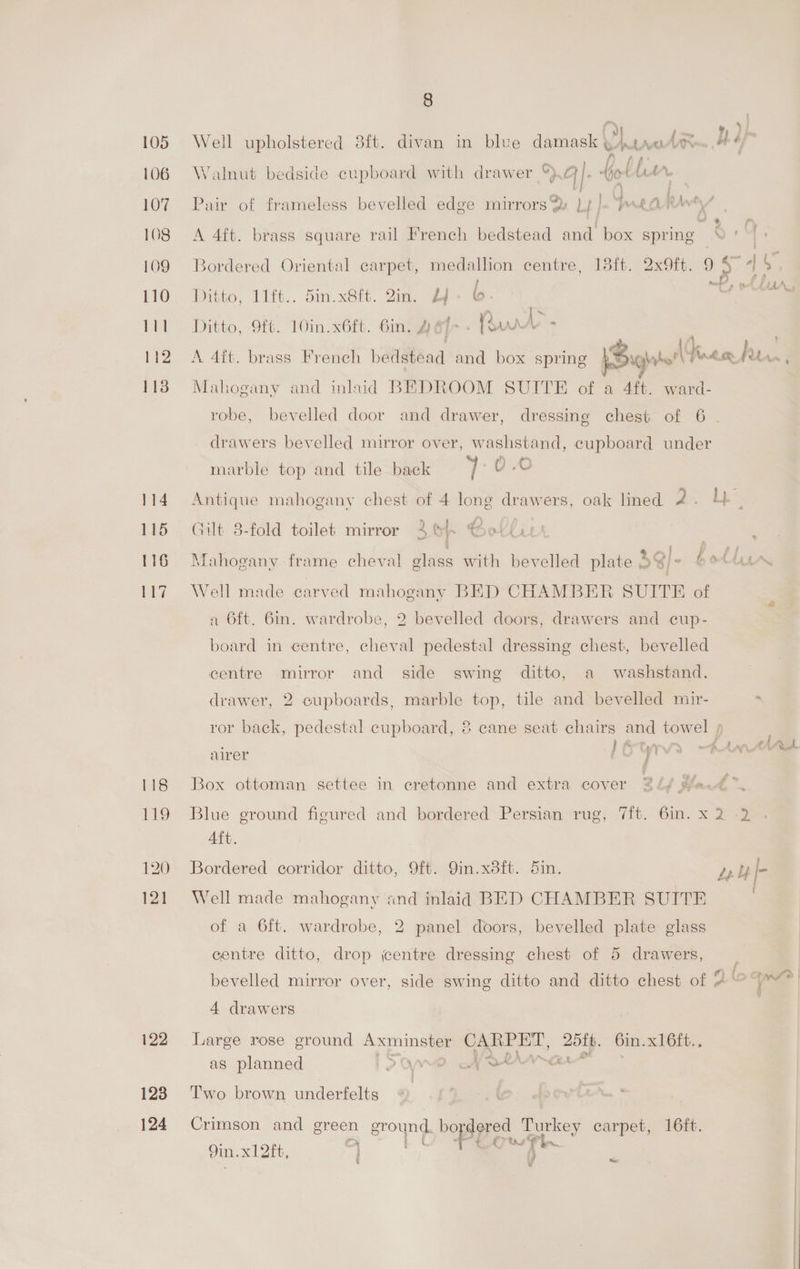 8
105 Well upholstered 3ft. divan in blue damask
106 Walnut bedside cupboard with drawer
107 Pair of frameless bevelled edge mirrors
108 A 4ft. brass square rail French bedstead and box spring
109 Bordered Oriental carpet, medallion centre, 13ft. 2x9ft. 9
110 Ditto, 11ft.. 5in.x8ft. 2in.
111 Ditto, 9ft. 10in.x6ft. 6in.
112 A 4ft. brass French bedstead and box spring
113 Mahogany and inlaid BEDROOM SUITE of a 4ft. ward-
robe, bevelled door and drawer, dressing chest of 6
drawers bevelled mirror over, washstand, cupboard under
marble top and tile back 7.0.0
114 Antique mahogany chest of 4 long drawers, oak lined 2.
115 Gilt 3-fold toilet mirror
116 Mahogany frame cheval glass with bevelled plate
117 Well made carved mahogany BED CHAMBER SUITE of
a 6ft. 6in. wardrobe, 2 bevelled doors, drawers and cup-
board in centre, cheval pedestal dressing chest, bevelled
centre mirror and side swing ditto, a washstand,
drawer, 2 cupboards, marble top, tile and bevelled mir-
ror back, pedestal cupboard, 3 cane seat chairs and towel
airer
118 Box ottoman settee in cretonne and extra cover
119 Blue ground figured and bordered Persian rug, 7ft. 6in. x
4ft.
120 Bordered corridor ditto, 9ft. 9in.x3ft. 5in.
121 Well made mahogany and inlaid BED CHAMBER SUITE
of a 6ft. wardrobe, 2 panel doors, bevelled plate glass
centre ditto, drop centre dressing chest of 5 drawers,
bevelled mirror over, side swing ditto and ditto chest of
4 drawers
122 Large rose ground Axminster CARPET, 25ft. 6in.x16ft.,
as planned
123 Two brown underfelts
124 Crimson and green ground bordered Turkey carpet, 16ft.
9in.x12ft,